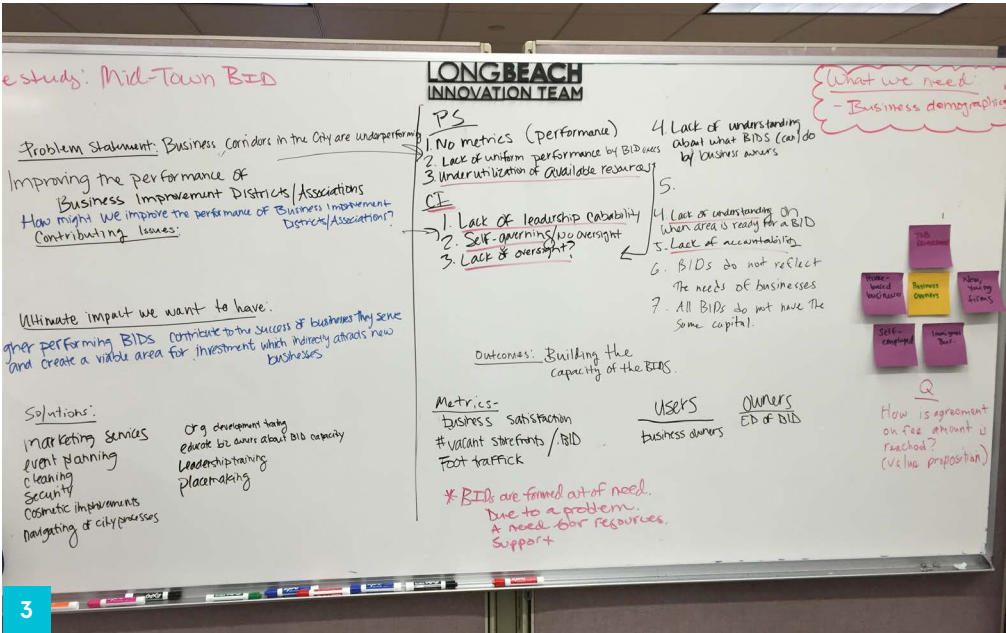 e study: Mid-Town BID
Problem Statement: Business Corridors in the City are underperforming
Improving the performance of
Business Improvement Districts/Associations
How might we improve the performance of Business Improvement
Districts/Associations?
Contributing Issues:
Ultimate impact we want to have:
gher performing BIDs contribute to the success of businesses they serve
and create a viable area for investment which indirectly attracts new
businesses
Solutions:
marketing services
event planning
cleaning
Security
Cosmetic improvements
navigating of city processes
org development
educate biz owners about BID capacity
Leadership training
placemaking
LONG BEACH
INNOVATION TEAM
PS
1. No metrics (performance)
2. Lack of uniform performance by BID
3. Underutilization of available resources
CI
1. Lack of leadership cabability
2. Self-governing/No oversight
3. Lack of oversight?
4. Lack of understanding
about what BIDS (can) do
by business owners
5.
4. Lack of understanding on
when area is ready for a BID
5. Lack of accountability
6. BIDs do not reflect
The needs of businesses
7. All BIDs do not have The
same capital.
Outcomes: Building the
capacity of the BIDS.
Metrics-
business satisfaction
# vacant storefronts / BID
Foot traffick
USERS
business owners
OWNERS
ED of BID
* BIDs are formed out of need.
Due to a problem.
A need for resources.
Support
What we need:
- Business demographics
Home-
based
businesses
Business
owners
New,
young
firms
Self-
employed
Immigrant
Q
How is agreement
on fee amount is
reached?
(value proposition)
3